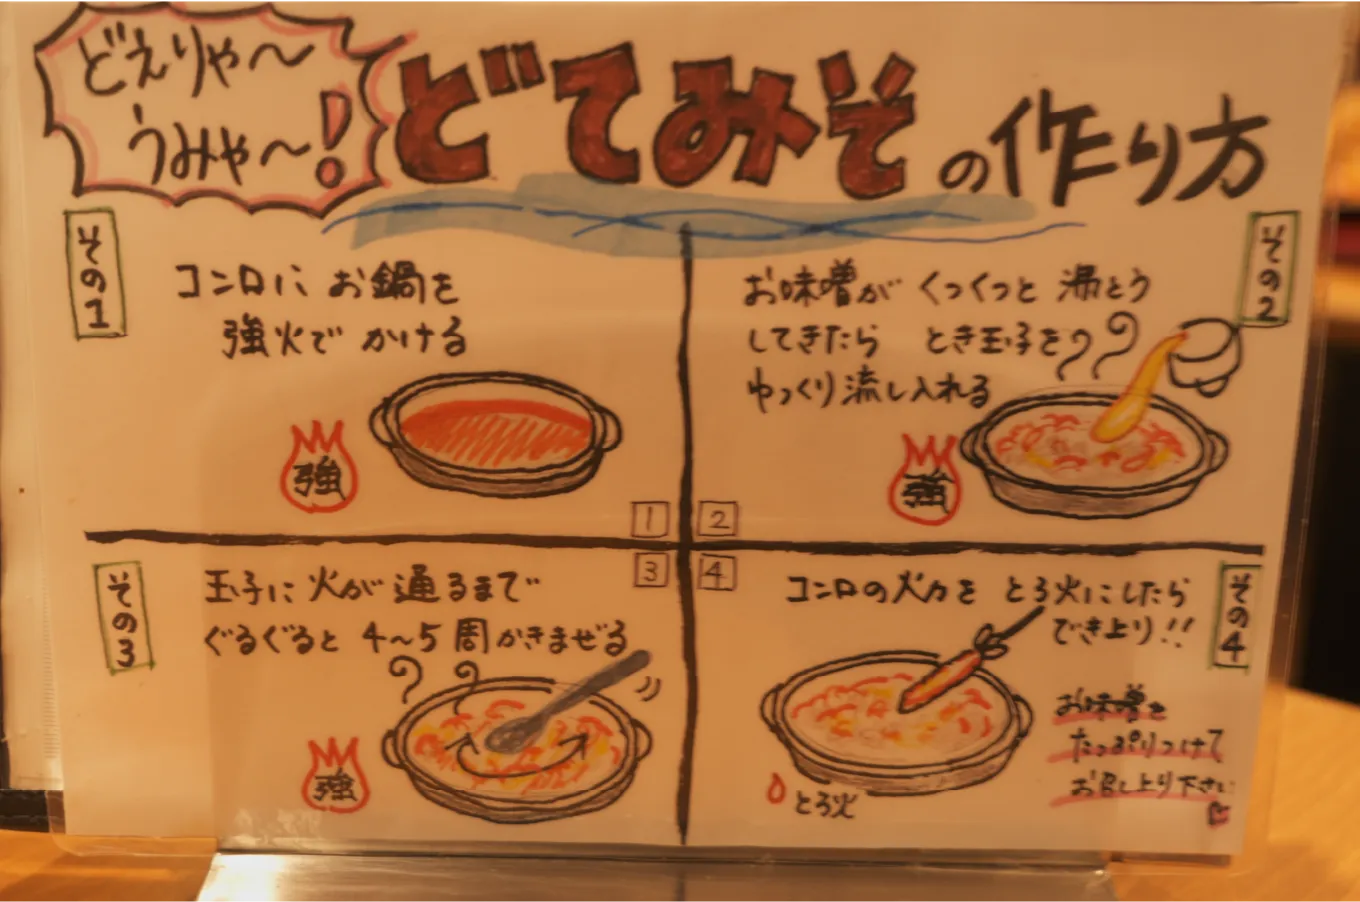 どえりゃ～
うみゃ～!
どてみその作り方
その1
コンロに お鍋を
強火で かける
強
1
その2
お味噌が くつくつと 沸とう
してきたら とき玉子を
ゆっくり流し入れる
強
2
その3
玉子に 火が 通るまで
ぐるぐると 4～5 周かきまぜる
強
3
その4
コンロの火力を とろ火にしたら
でき上り!!
お味噌を
たっぷりつけて
お召し上り下さい
とろ火
4